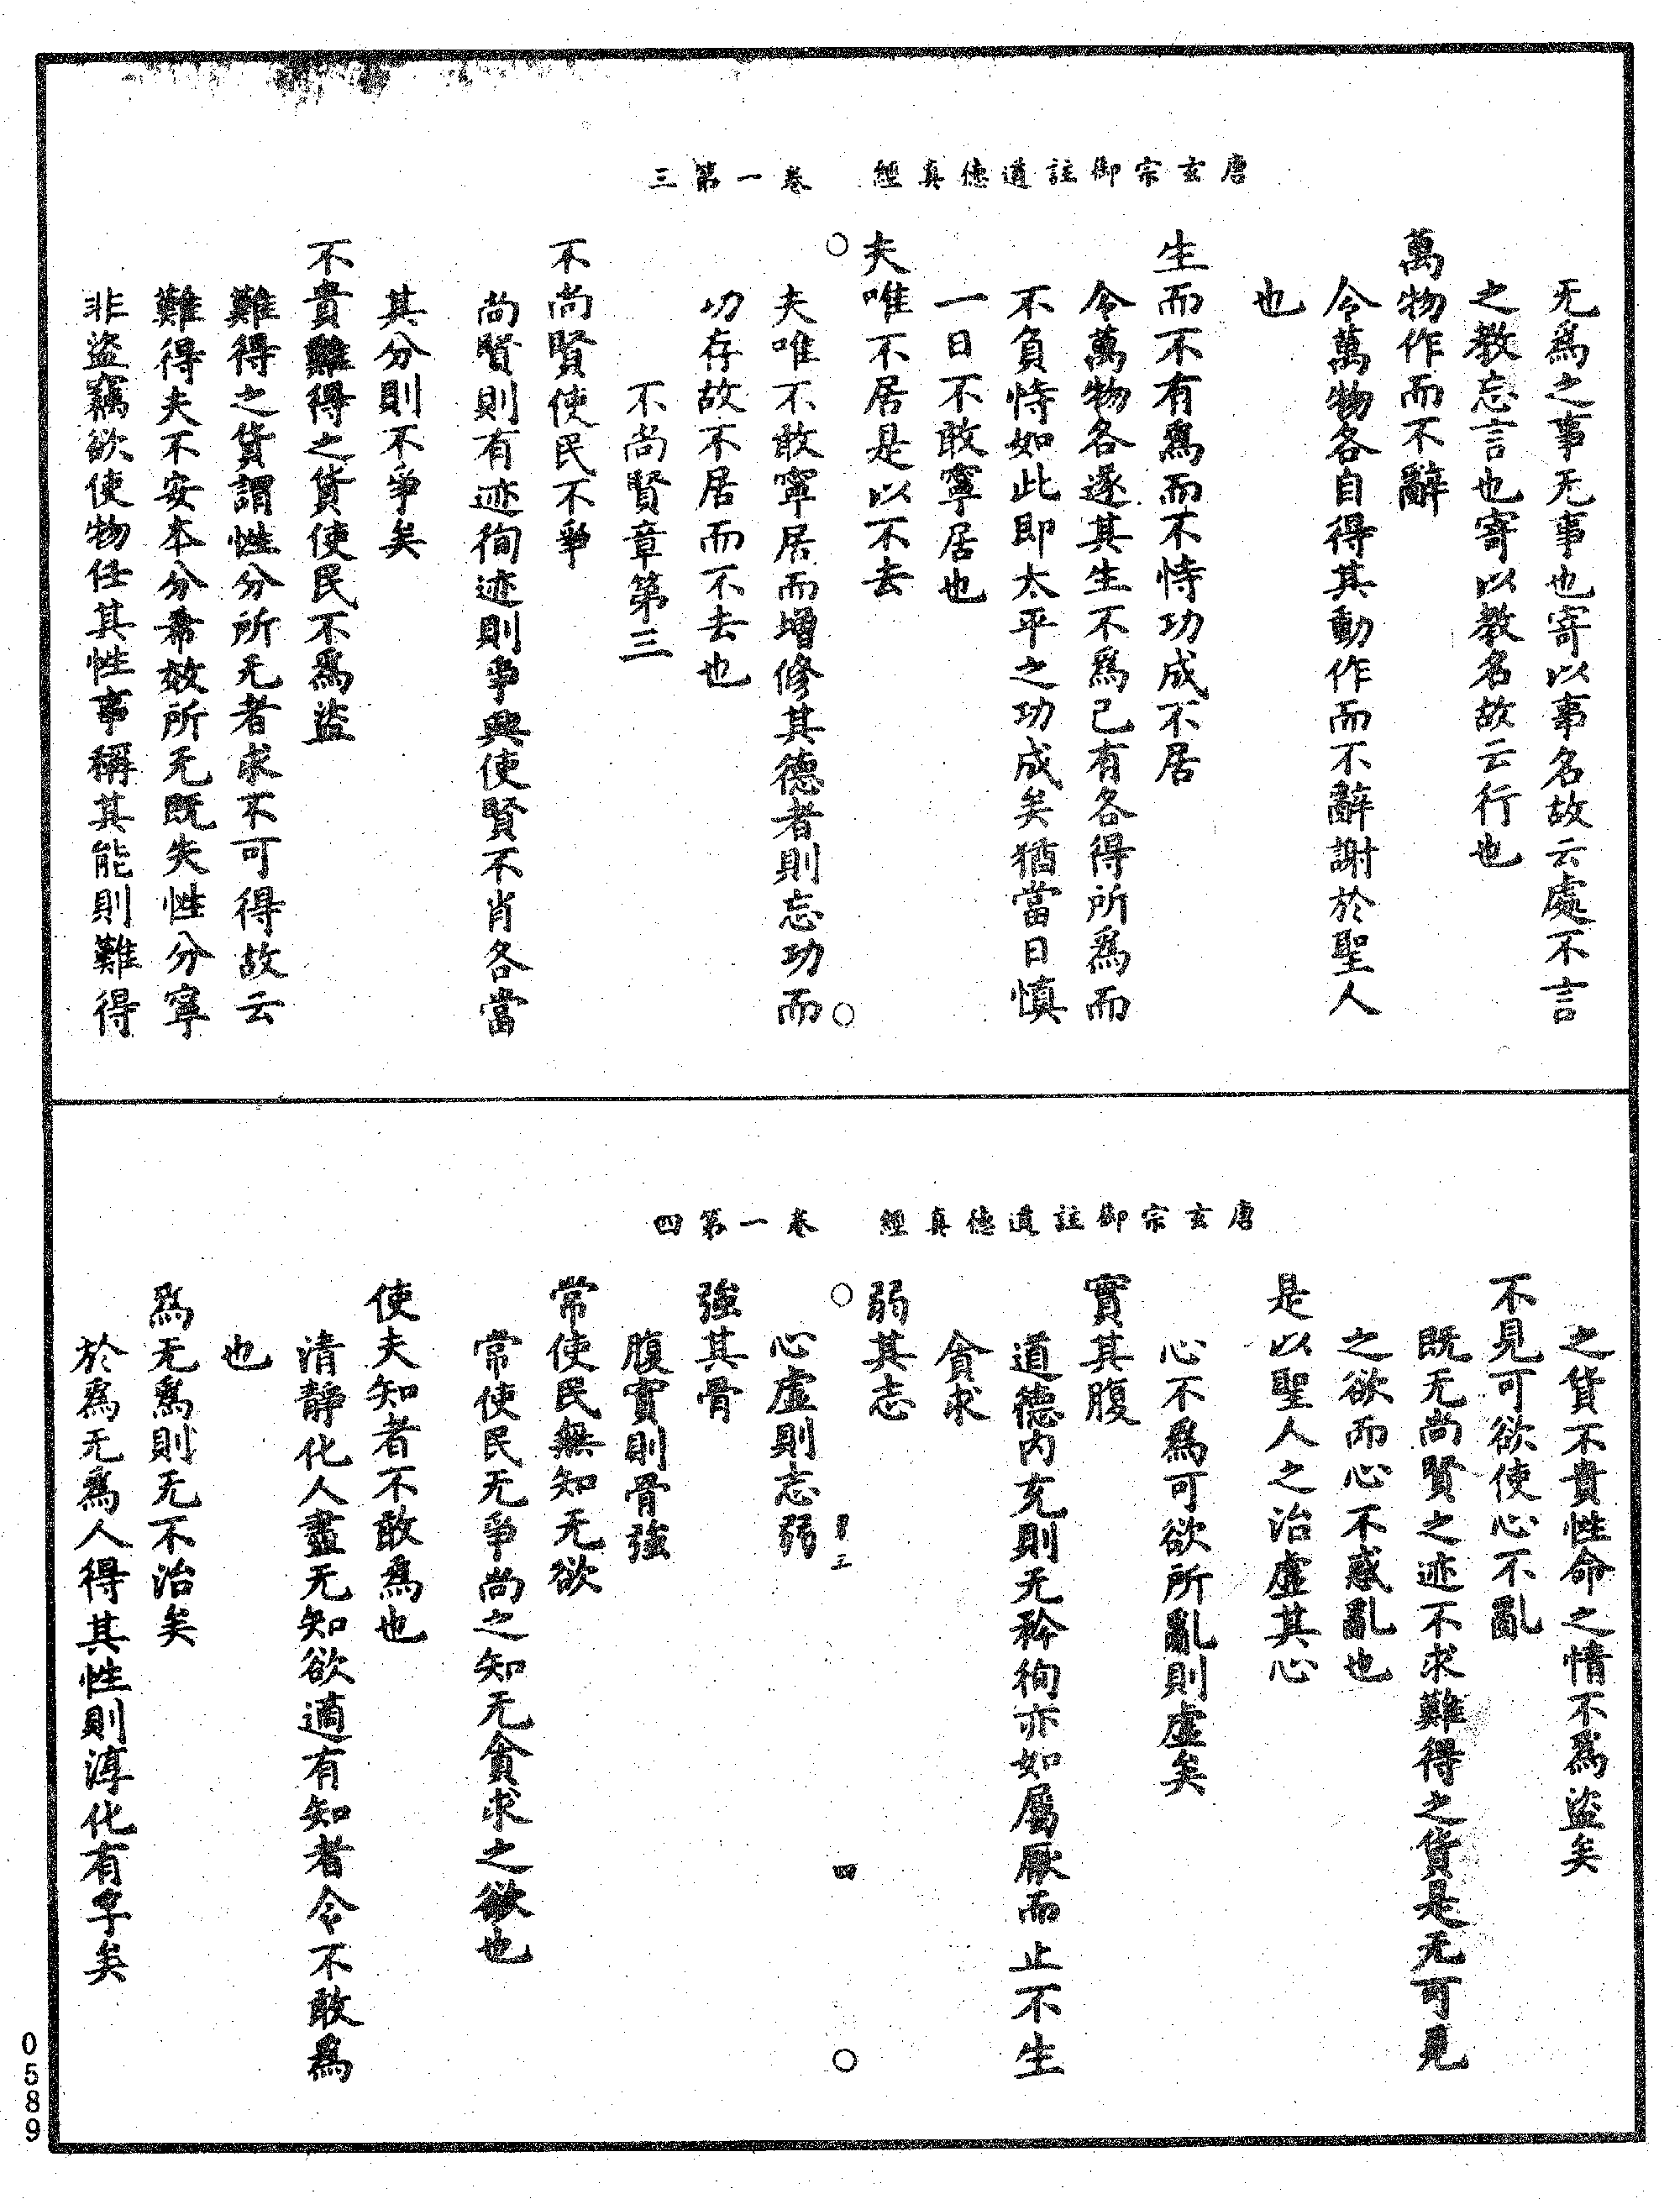 唐玄宗御註道德真經　卷一第三
无爲之事无事也寄以事名故云處不言
之教忘言也寄以教名故云行也
萬物作而不辭
令萬物各自得其動作而不辭謝於聖人
也
生而不有爲而不恃功成不居
令萬物各遂其生不爲己有各得所爲而
不負恃如此即太平之功成矣猶當日慎
一日不敢寧居也
夫唯不居是以不去
夫唯不敢寧居而增修其德者則忘功而
功存故不居而不去也
不尚賢章第三
不尚賢使民不爭
尚賢則有迹徇迹則爭興使賢不肖各當
其分則不爭矣
不貴難得之貨使民不爲盜
難得之貨謂性分所无者求不可得故云
難得夫不安本分希效所无既失性分寧
非盜竊欲使物任其性事稱其能則難得
唐玄宗御註道德真經　卷一第四
之貨不貴性命之情不爲盜矣
不見可欲使心不亂
既无尚賢之迹不求難得之貨是无可見
之欲而心不惑亂也
是以聖人之治虛其心
心不爲可欲所亂則虛矣
實其腹
道德內充則无矜徇亦如屬厭而止不生
貪求
弱其志
三
四
心虛則志弱
強其骨
腹實則骨強
常使民無知无欲
常使民无爭尚之知无貪求之欲也
使夫知者不敢爲也
清靜化人盡无知欲適有知者令不敢爲
也
爲无爲則无不治矣
於爲无爲人得其性則淳化有孚矣
0589